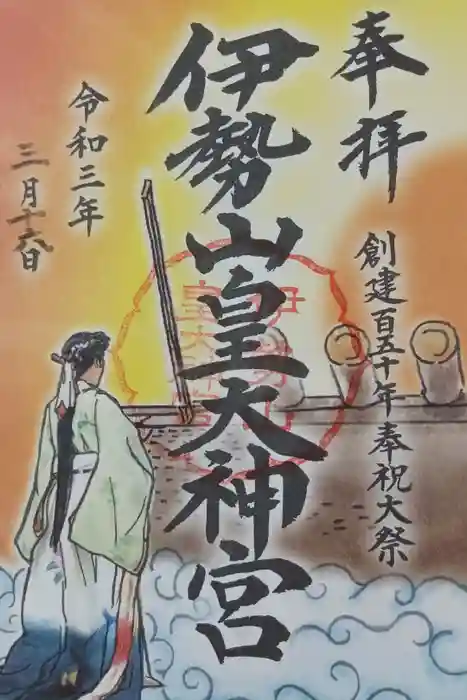 奉拝
創建百五十年奉祝大祭
伊勢山皇大神宮
令和三年
三月十六日